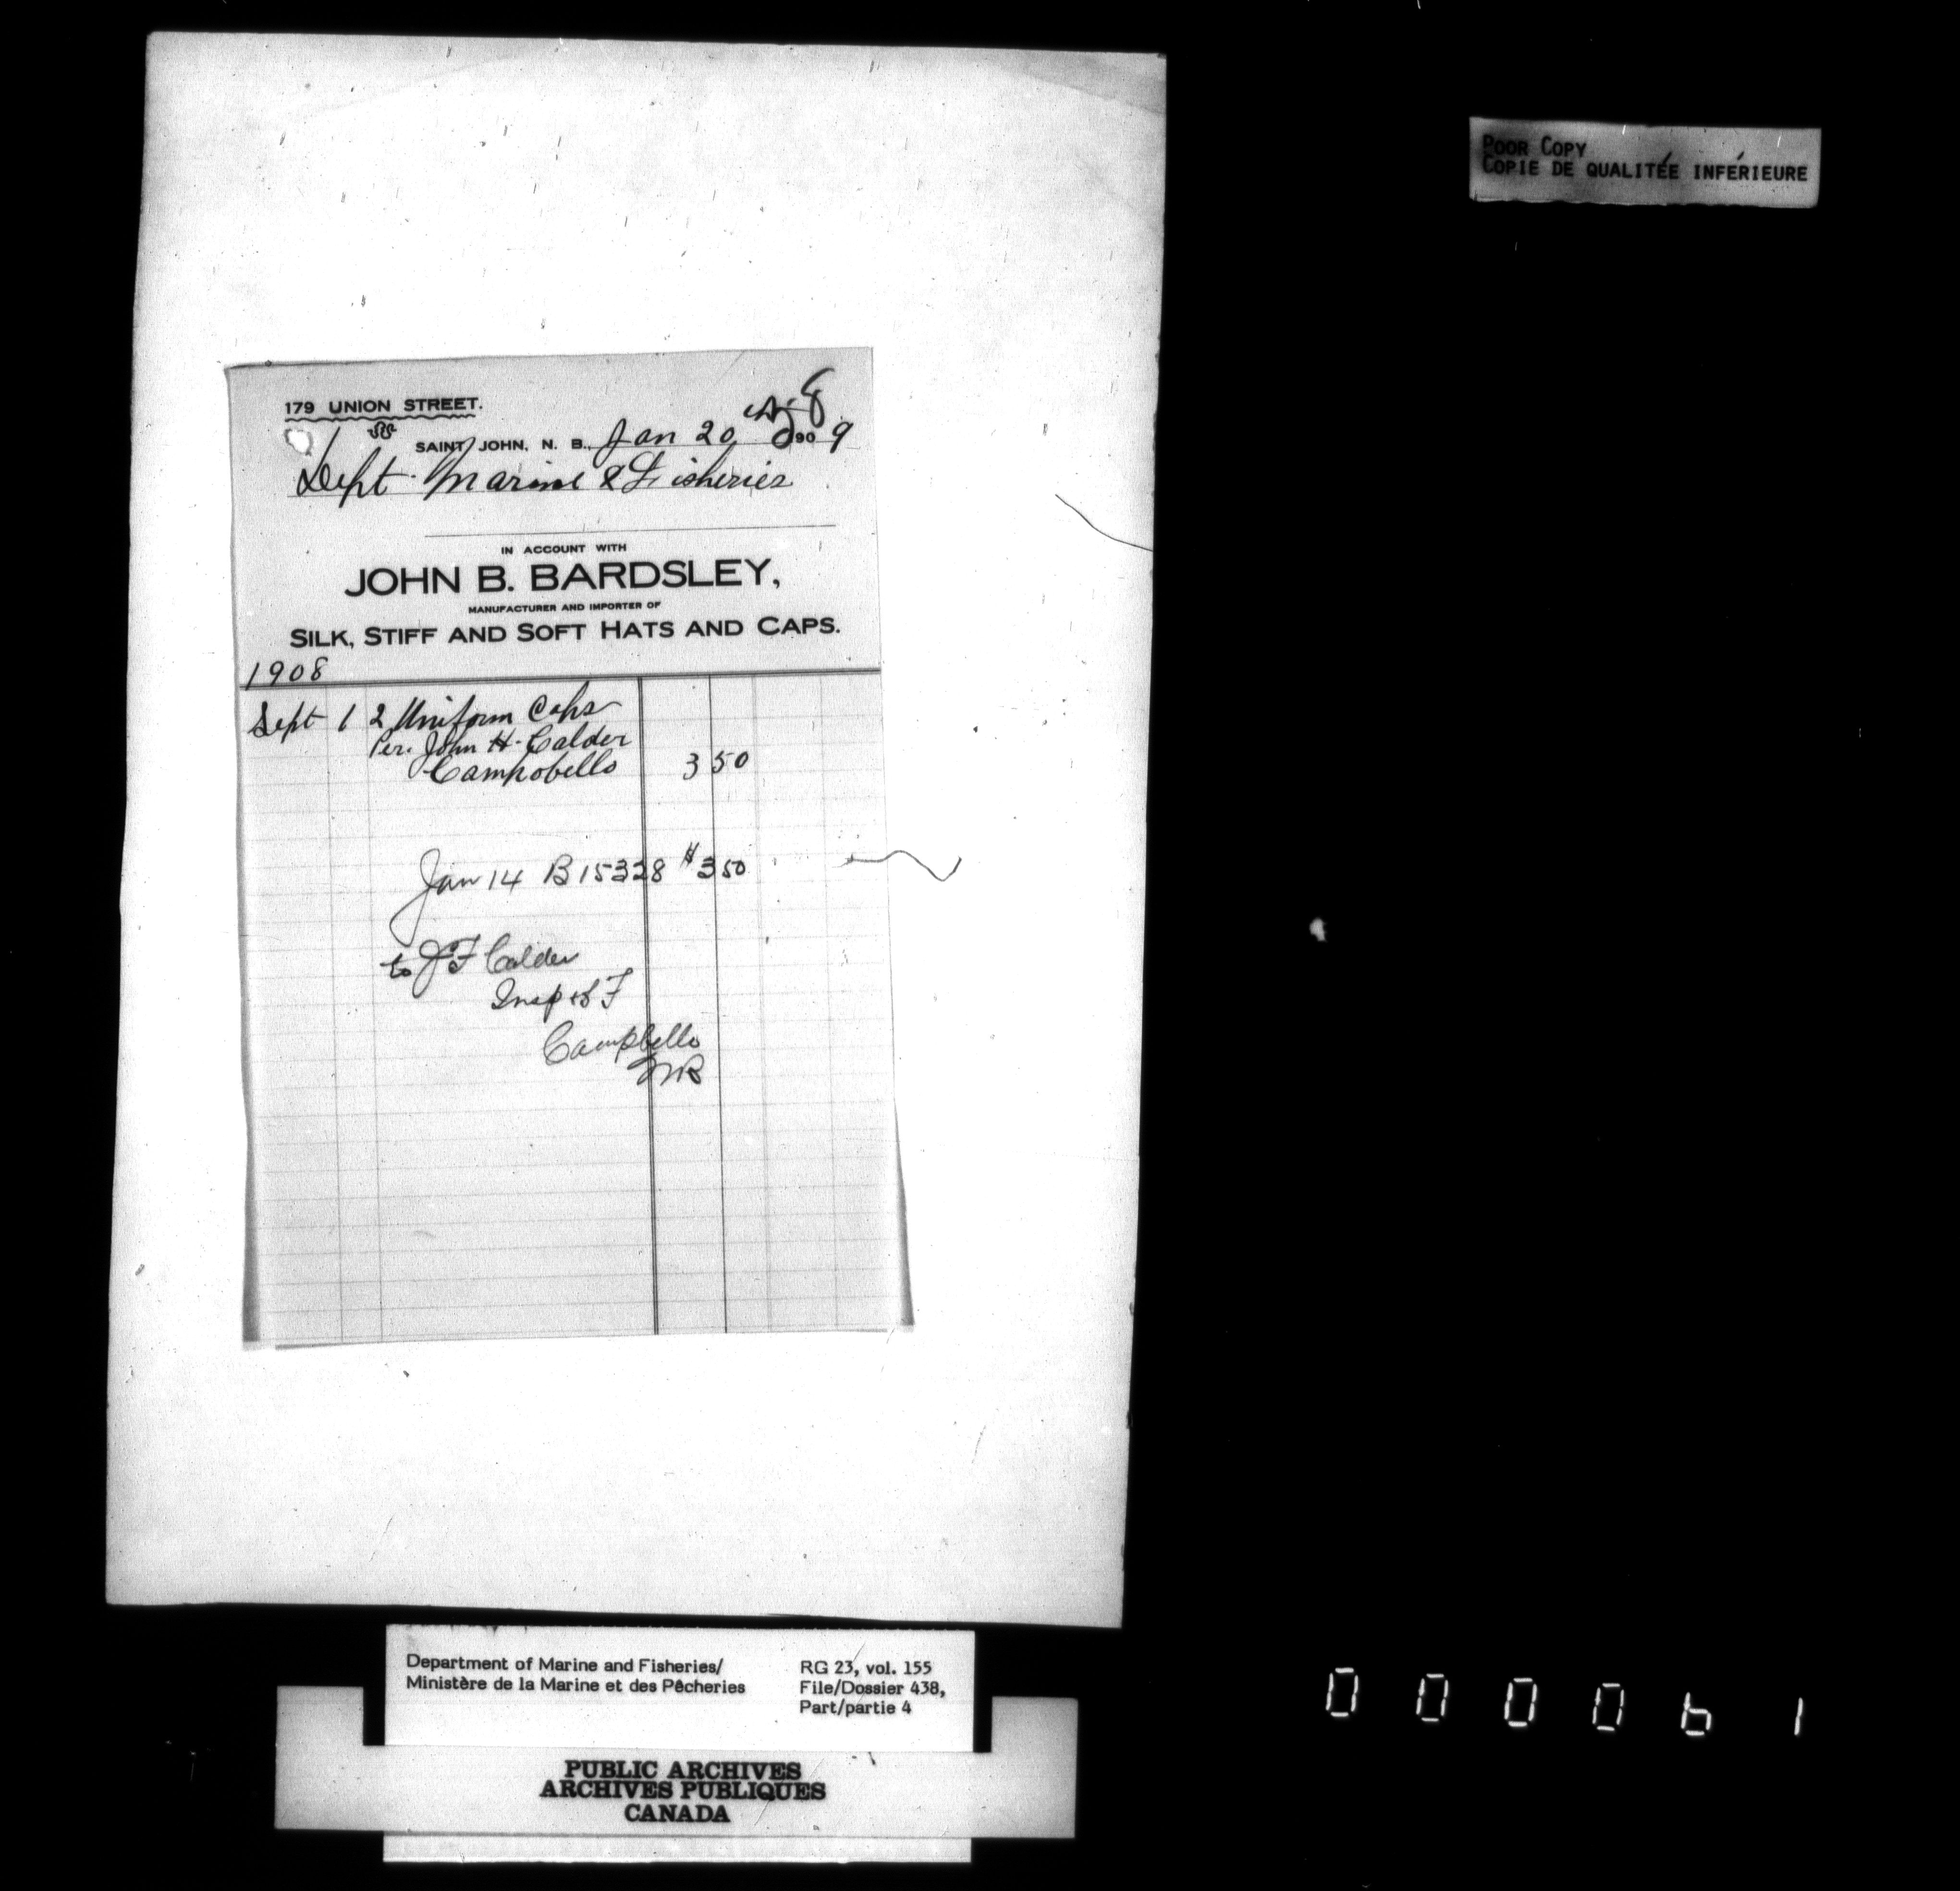 POOR COPY
COPIE DE QUALITÉE INFÉRIEURE
179 UNION STREET.
SAINT JOHN, N. B., Jan 20 1909
Dept. Marine & Fisheries
IN ACCOUNT WITH
JOHN B. BARDSLEY,
MANUFACTURER AND IMPORTER OF
SILK, STIFF AND SOFT HATS AND CAPS.
1908
Sept 1 2 Uniform Caps
Per. John H. Calder
Campobello 3 50
Jan 14 B 15328 $3 50
to J F Calder
Insp of F
Campbello
NB
Department of Marine and Fisheries/
Ministère de la Marine et des Pêcheries
RG 23, vol. 155
File/Dossier 438,
Part/partie 4
PUBLIC ARCHIVES
ARCHIVES PUBLIQUES
CANADA
000061